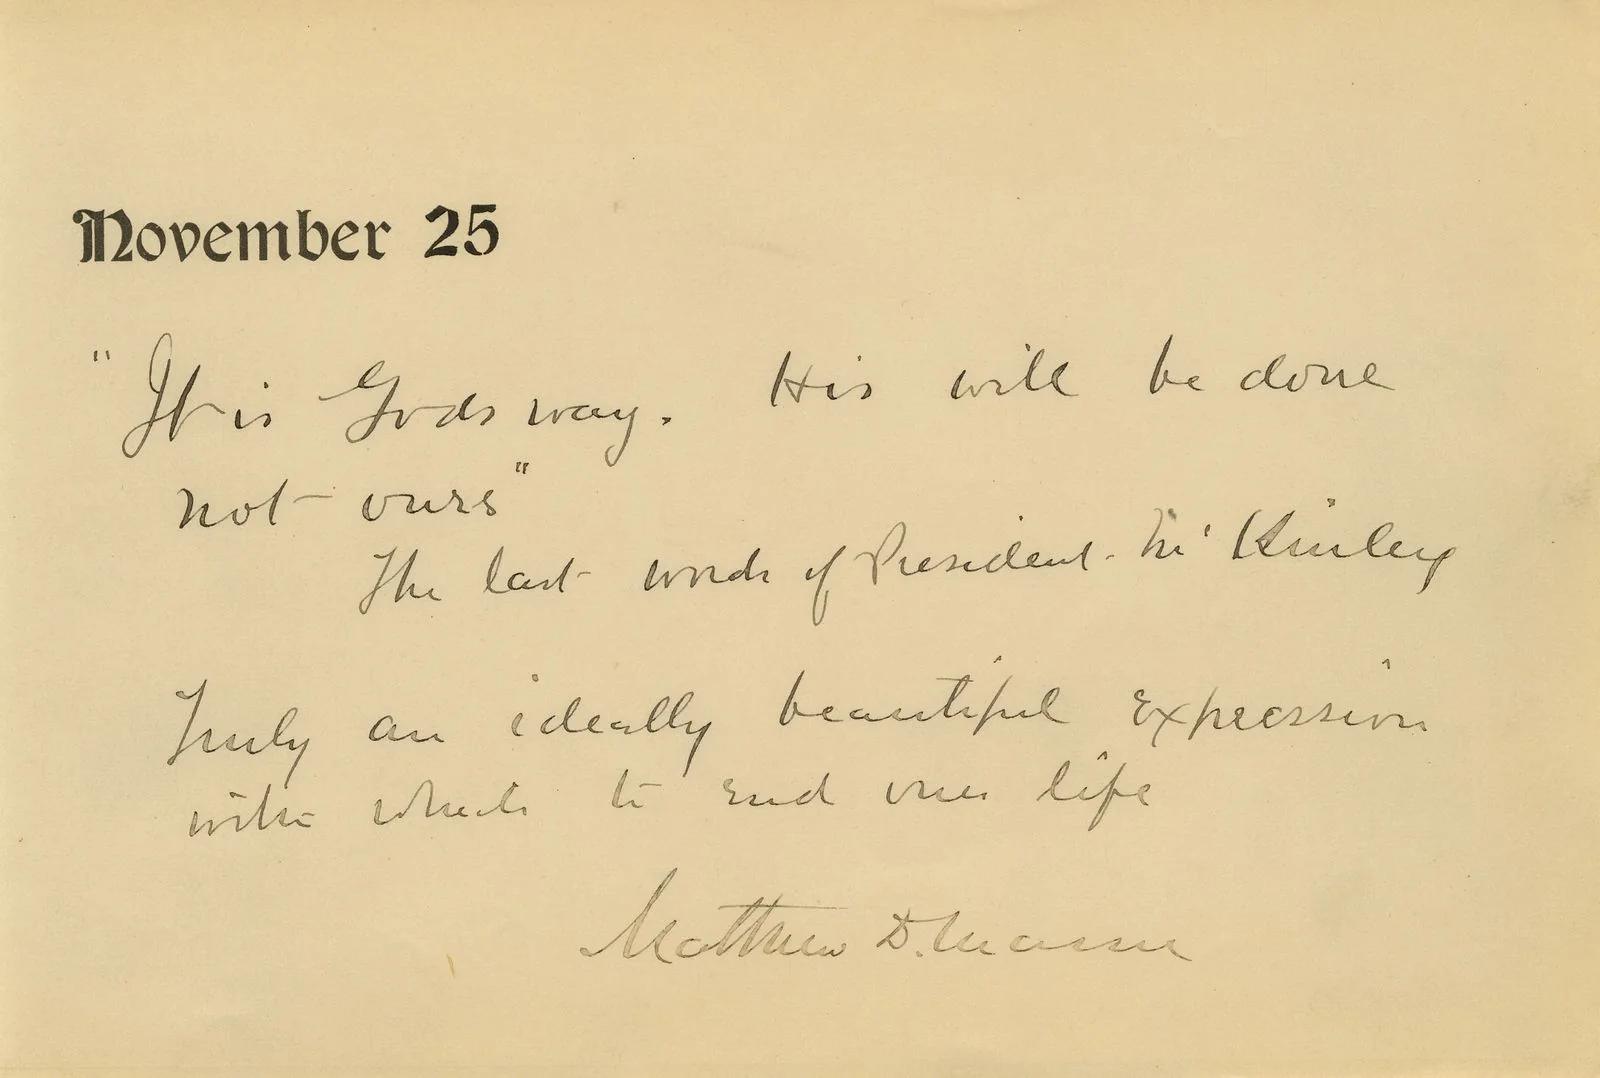 November 25
"It is Gods way. His will be done
not ours"
The last words of President McKinley
Truly an ideally beautiful expression
with which to end ones life
Matthew D. Mann